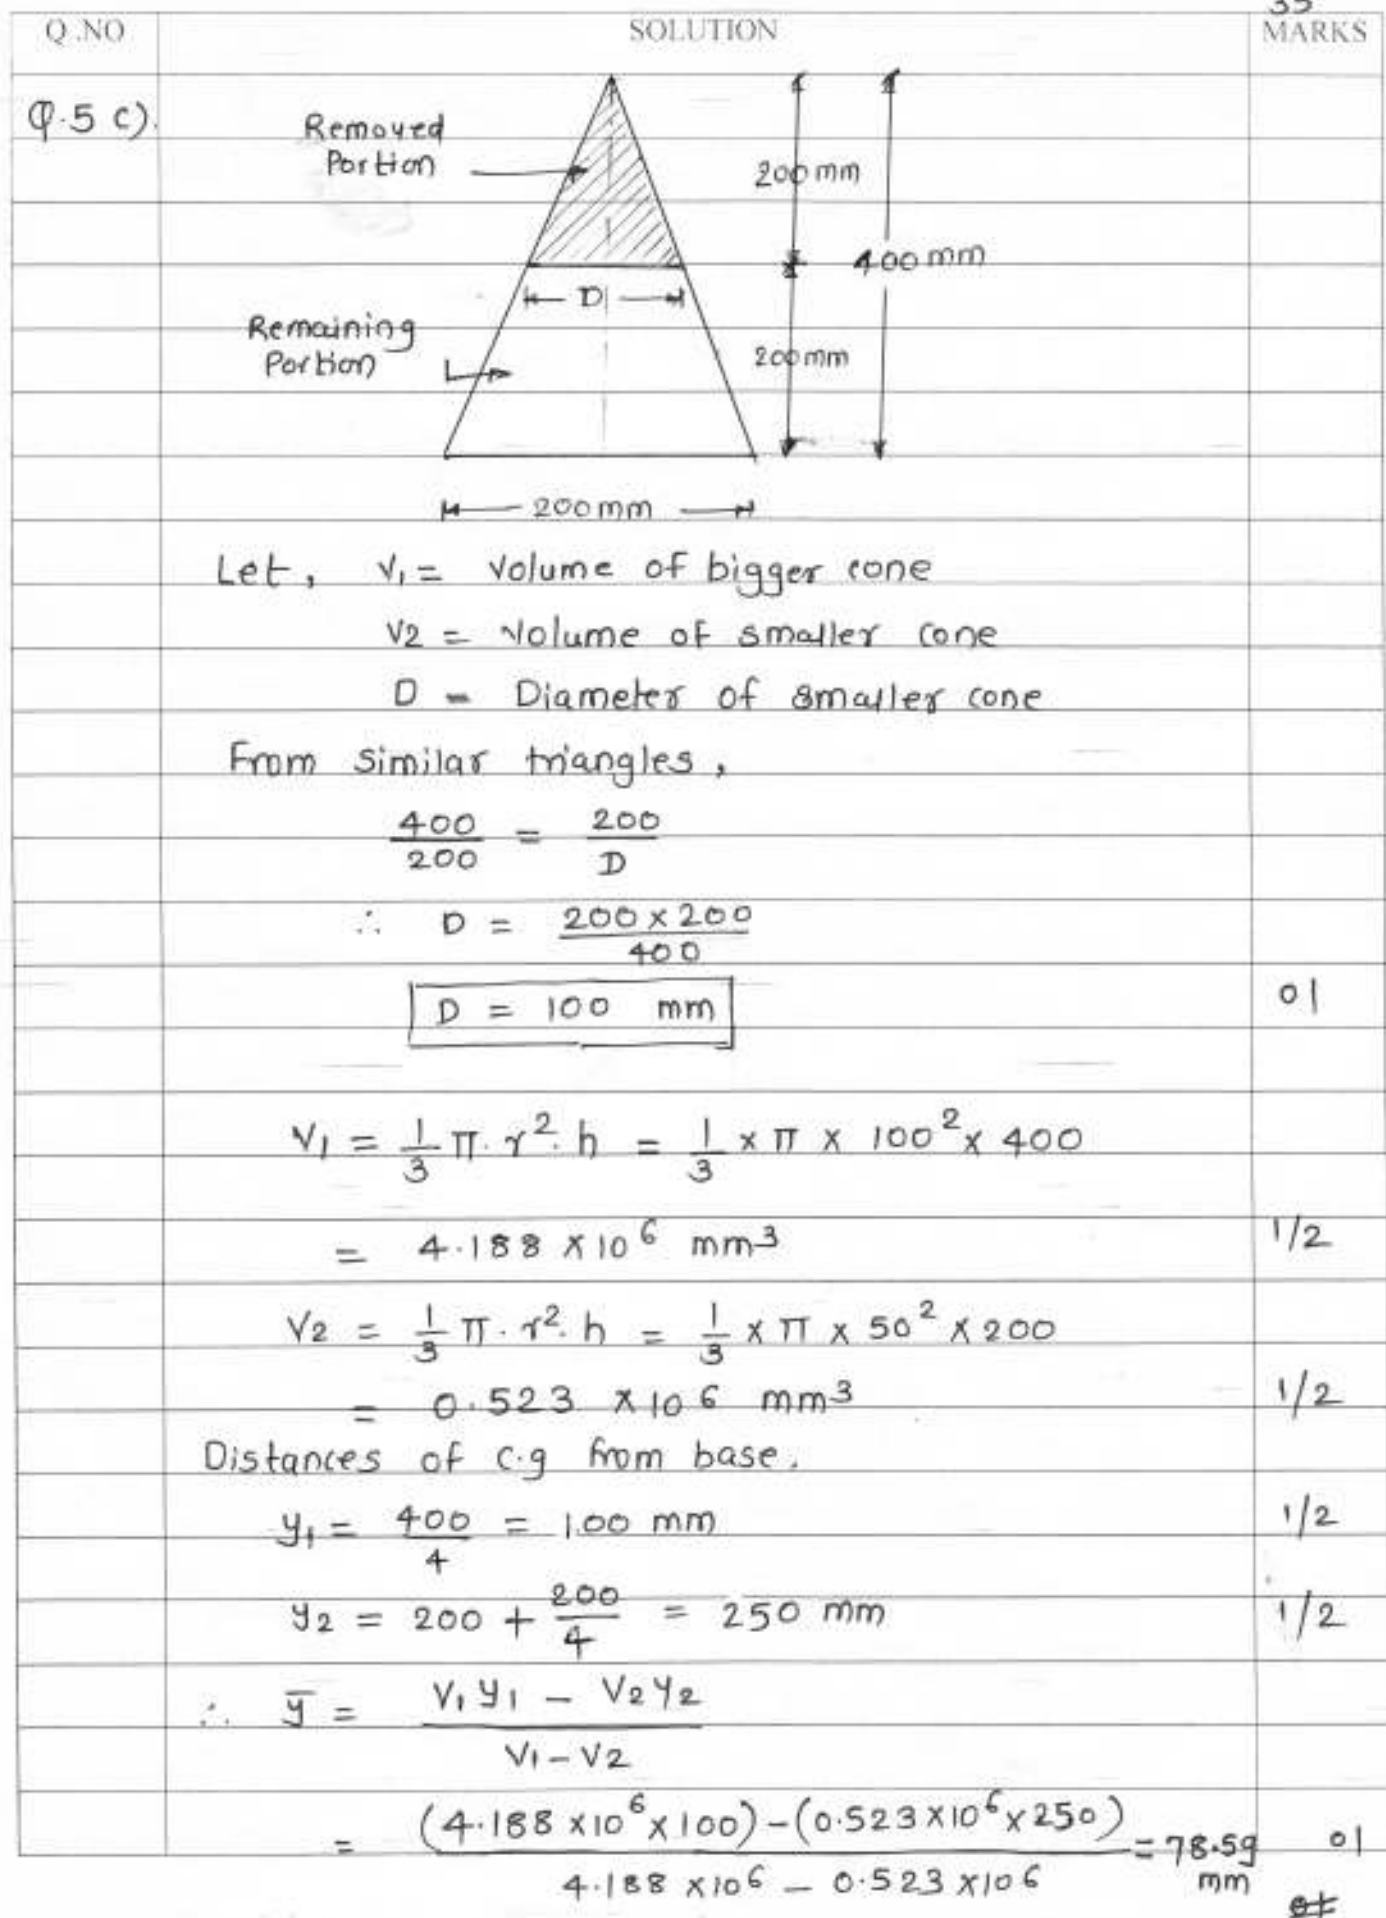 35
Q.NO SOLUTION MARKS
Q.5 c).
Removed
Portion
200 mm
400 mm
D
Remaining
Portion
200 mm
200 mm
Let, V₁ = Volume of bigger cone
V2 = Volume of smaller cone
D = Diameter of smaller cone
From similar triangles,
400/200 = 200/D
∴ D = 200 × 200/400
D = 100 mm 01
V₁ = 1/3 π. r². h = 1/3 × π × 100² × 400
= 4.188 × 10⁶ mm³ 1/2
V2 = 1/3 π. r². h = 1/3 × π × 50² × 200
= 0.523 × 10⁶ mm³ 1/2
Distances of c.g from base.
y₁ = 400/4 = 100 mm 1/2
y2 = 200 + 200/4 = 250 mm 1/2
∴ ȳ = V₁ y₁ − V2 y2/V₁ − V2
= (4.188 × 10⁶ × 100) − (0.523 × 10⁶ × 250)/4.188 × 10⁶ − 0.523 × 10⁶ = 78.59 mm 01